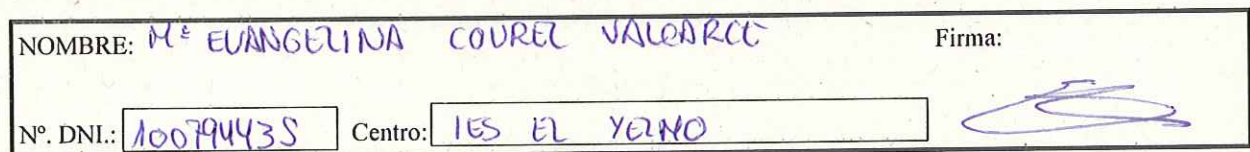 NOMBRE: Mª EVANGELINA COUREL VALCARCE Firma:
Nº. DNI.: 10079443S Centro: IES EL YERMO